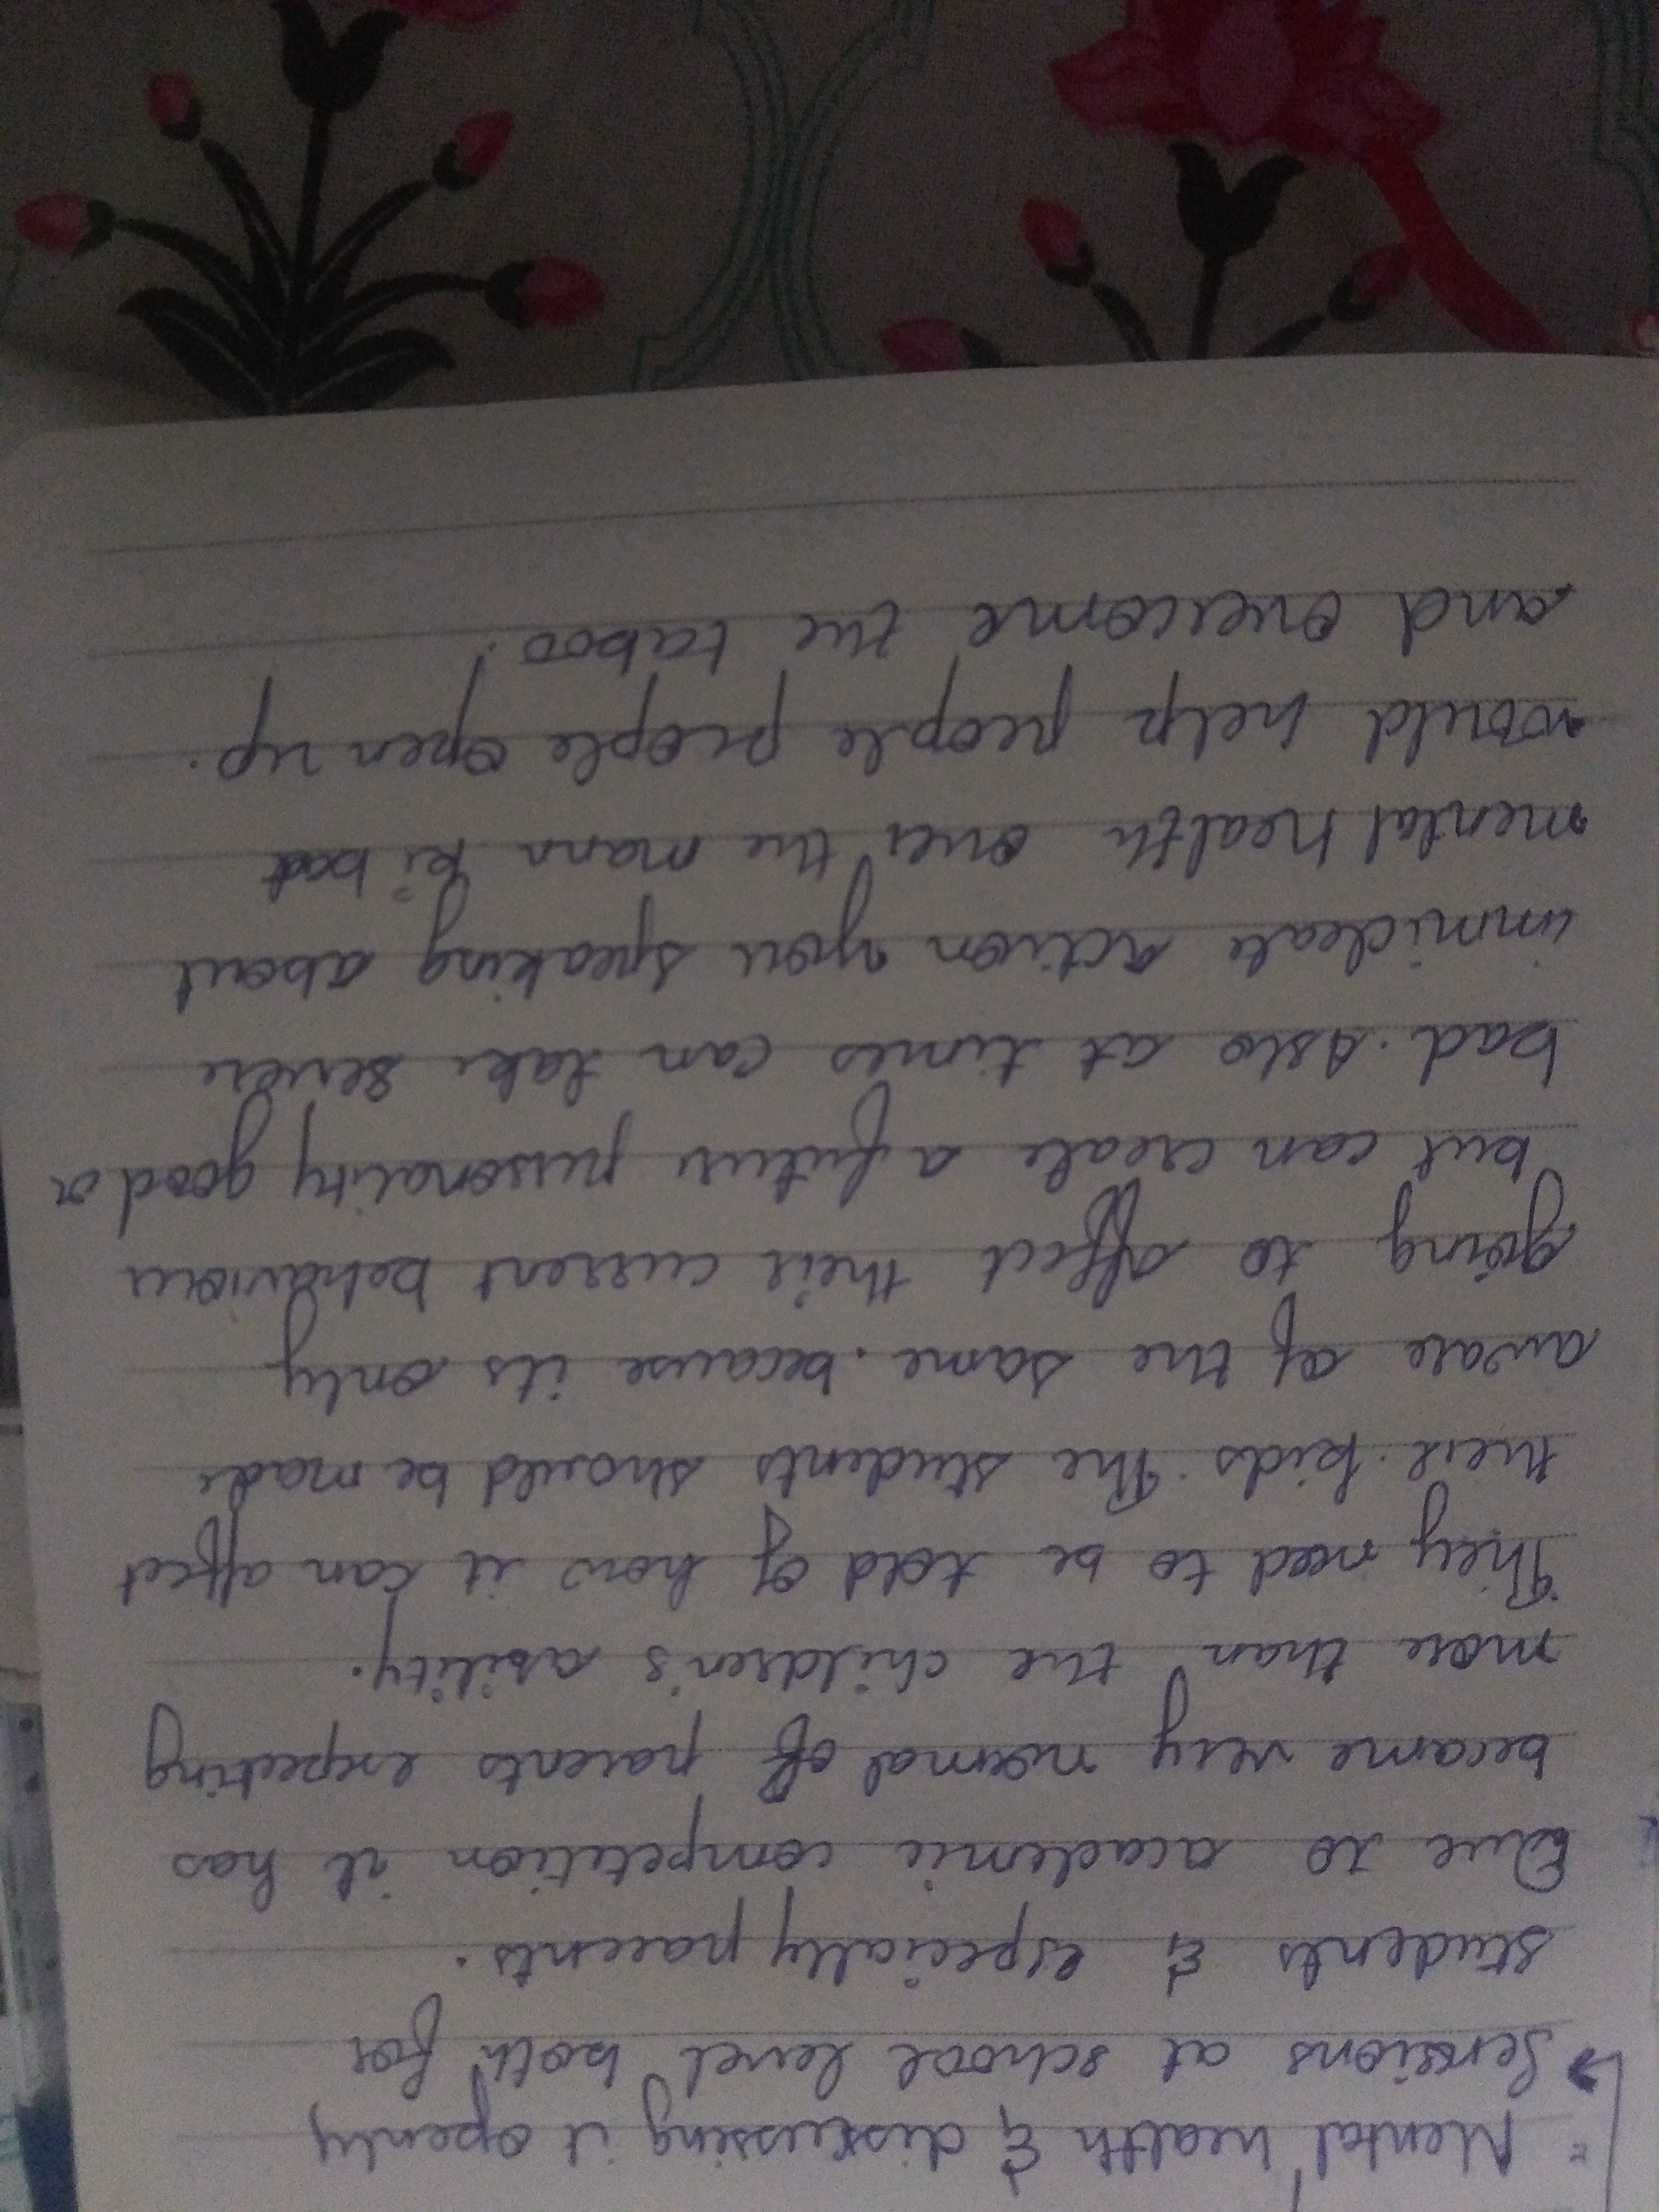 - Mental health & discussing it openly
→ Sensions at school level both for
students & especially parents.
Due to academic competition it has
became very normal of parents expecting
more than the children's ability.
They need to be told of how it can affect
their kids. The students should be made
aware of the same. because its only
going to affect their current behaviour
but can create a future personality good or
bad. Aslo at times can take severe
immideate action you speaking about
mental health over the mann ki baat
would help people people open up.
and overcome the taboo!